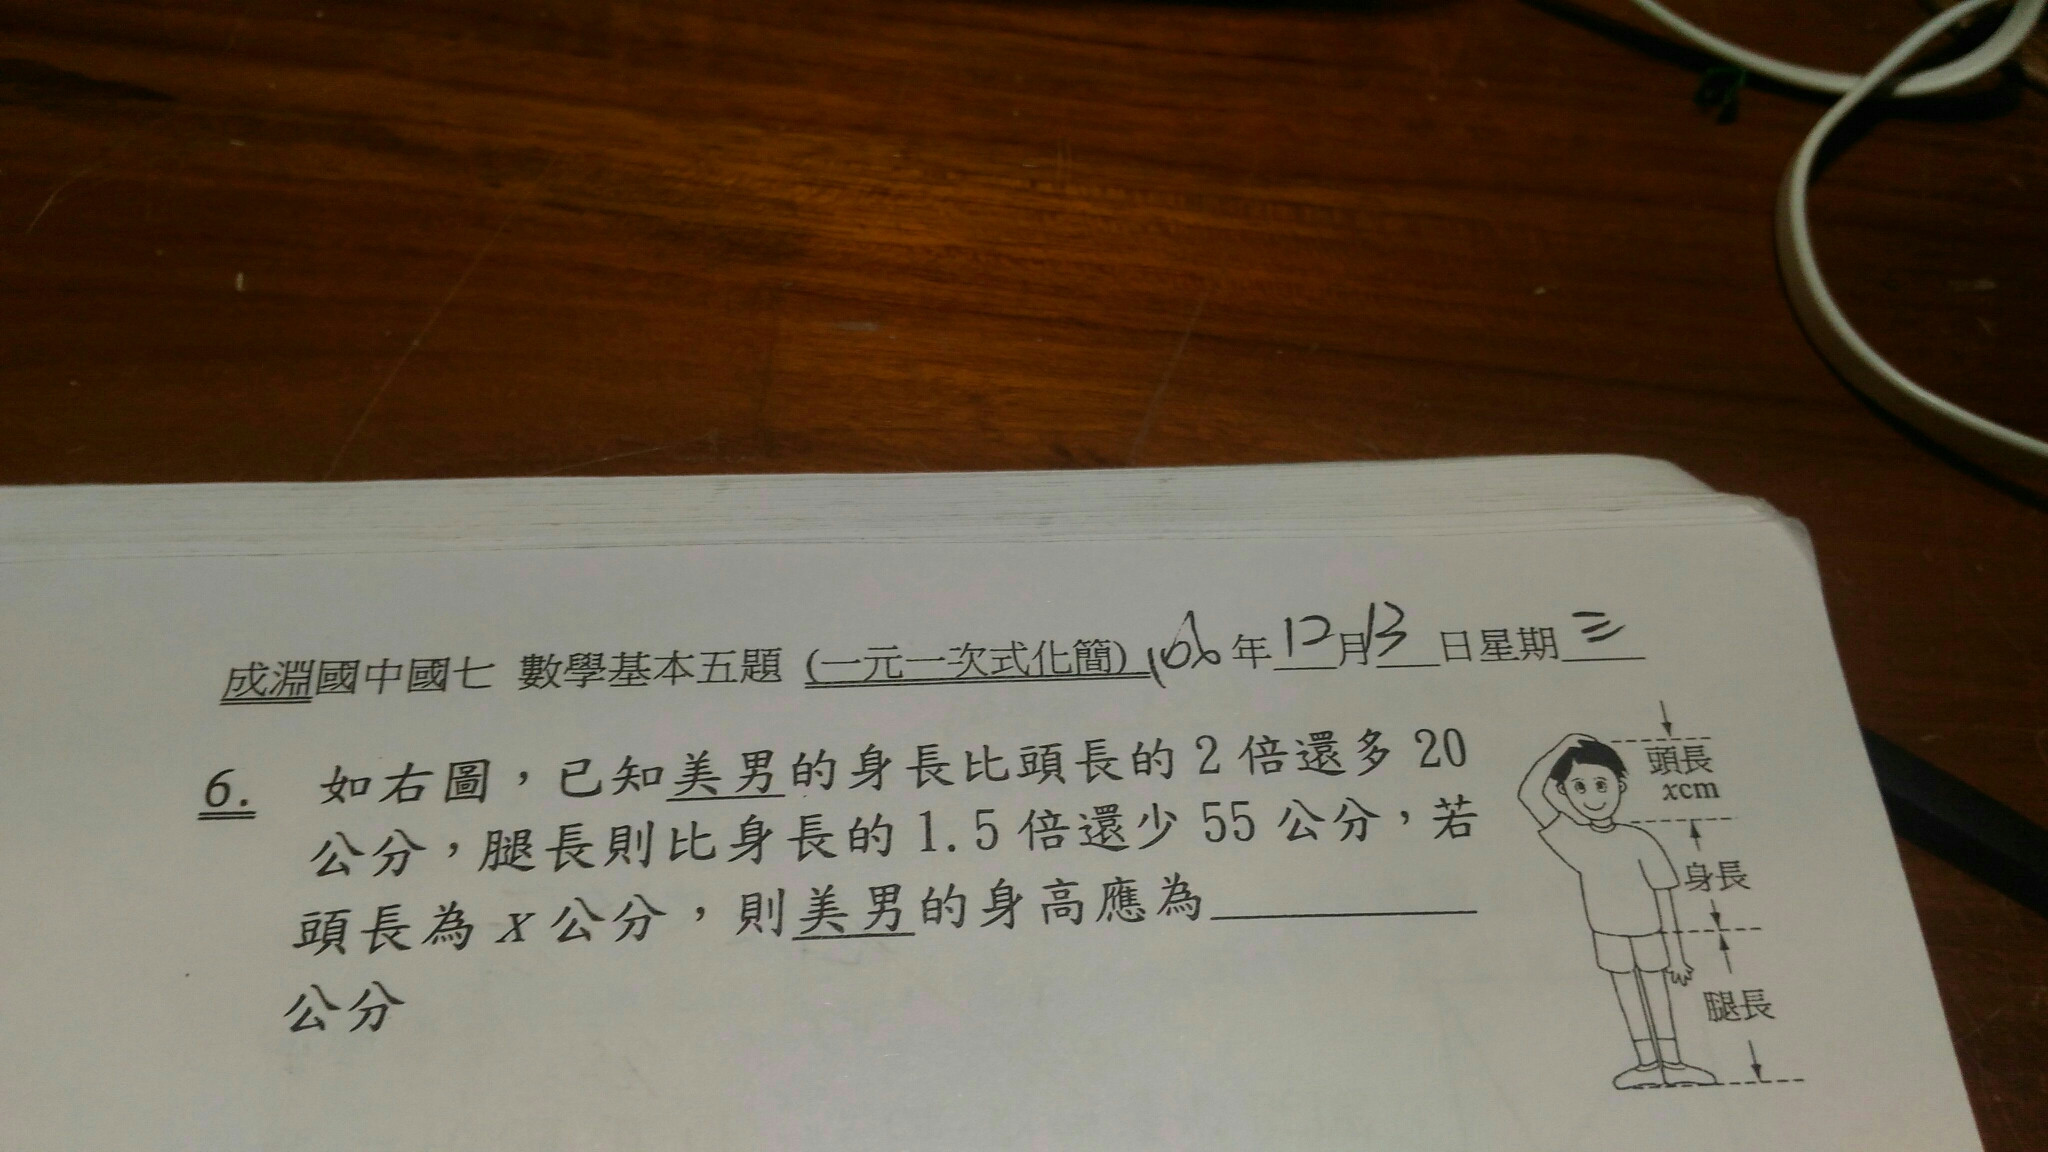 成淵國中國七 數學基本五題 (一元一次式化簡) 106年12月13日星期三
6. 如右圖，已知美男的身長比頭長的 2 倍還多 20
公分，腿長則比身長的 1.5 倍還少 55 公分，若
頭長為 x 公分，則美男的身高應為
公分
頭長
xcm
身長
腿長